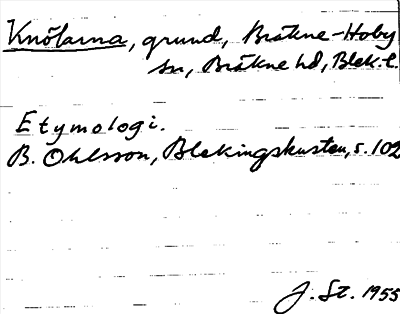 Knölarna, grund, Bräkne-Hoby
sn, Bräkne hd, Blek. l.
Etymologi.
B. Ohlsson, Blekingskusten, s. 102
J. St. 1955